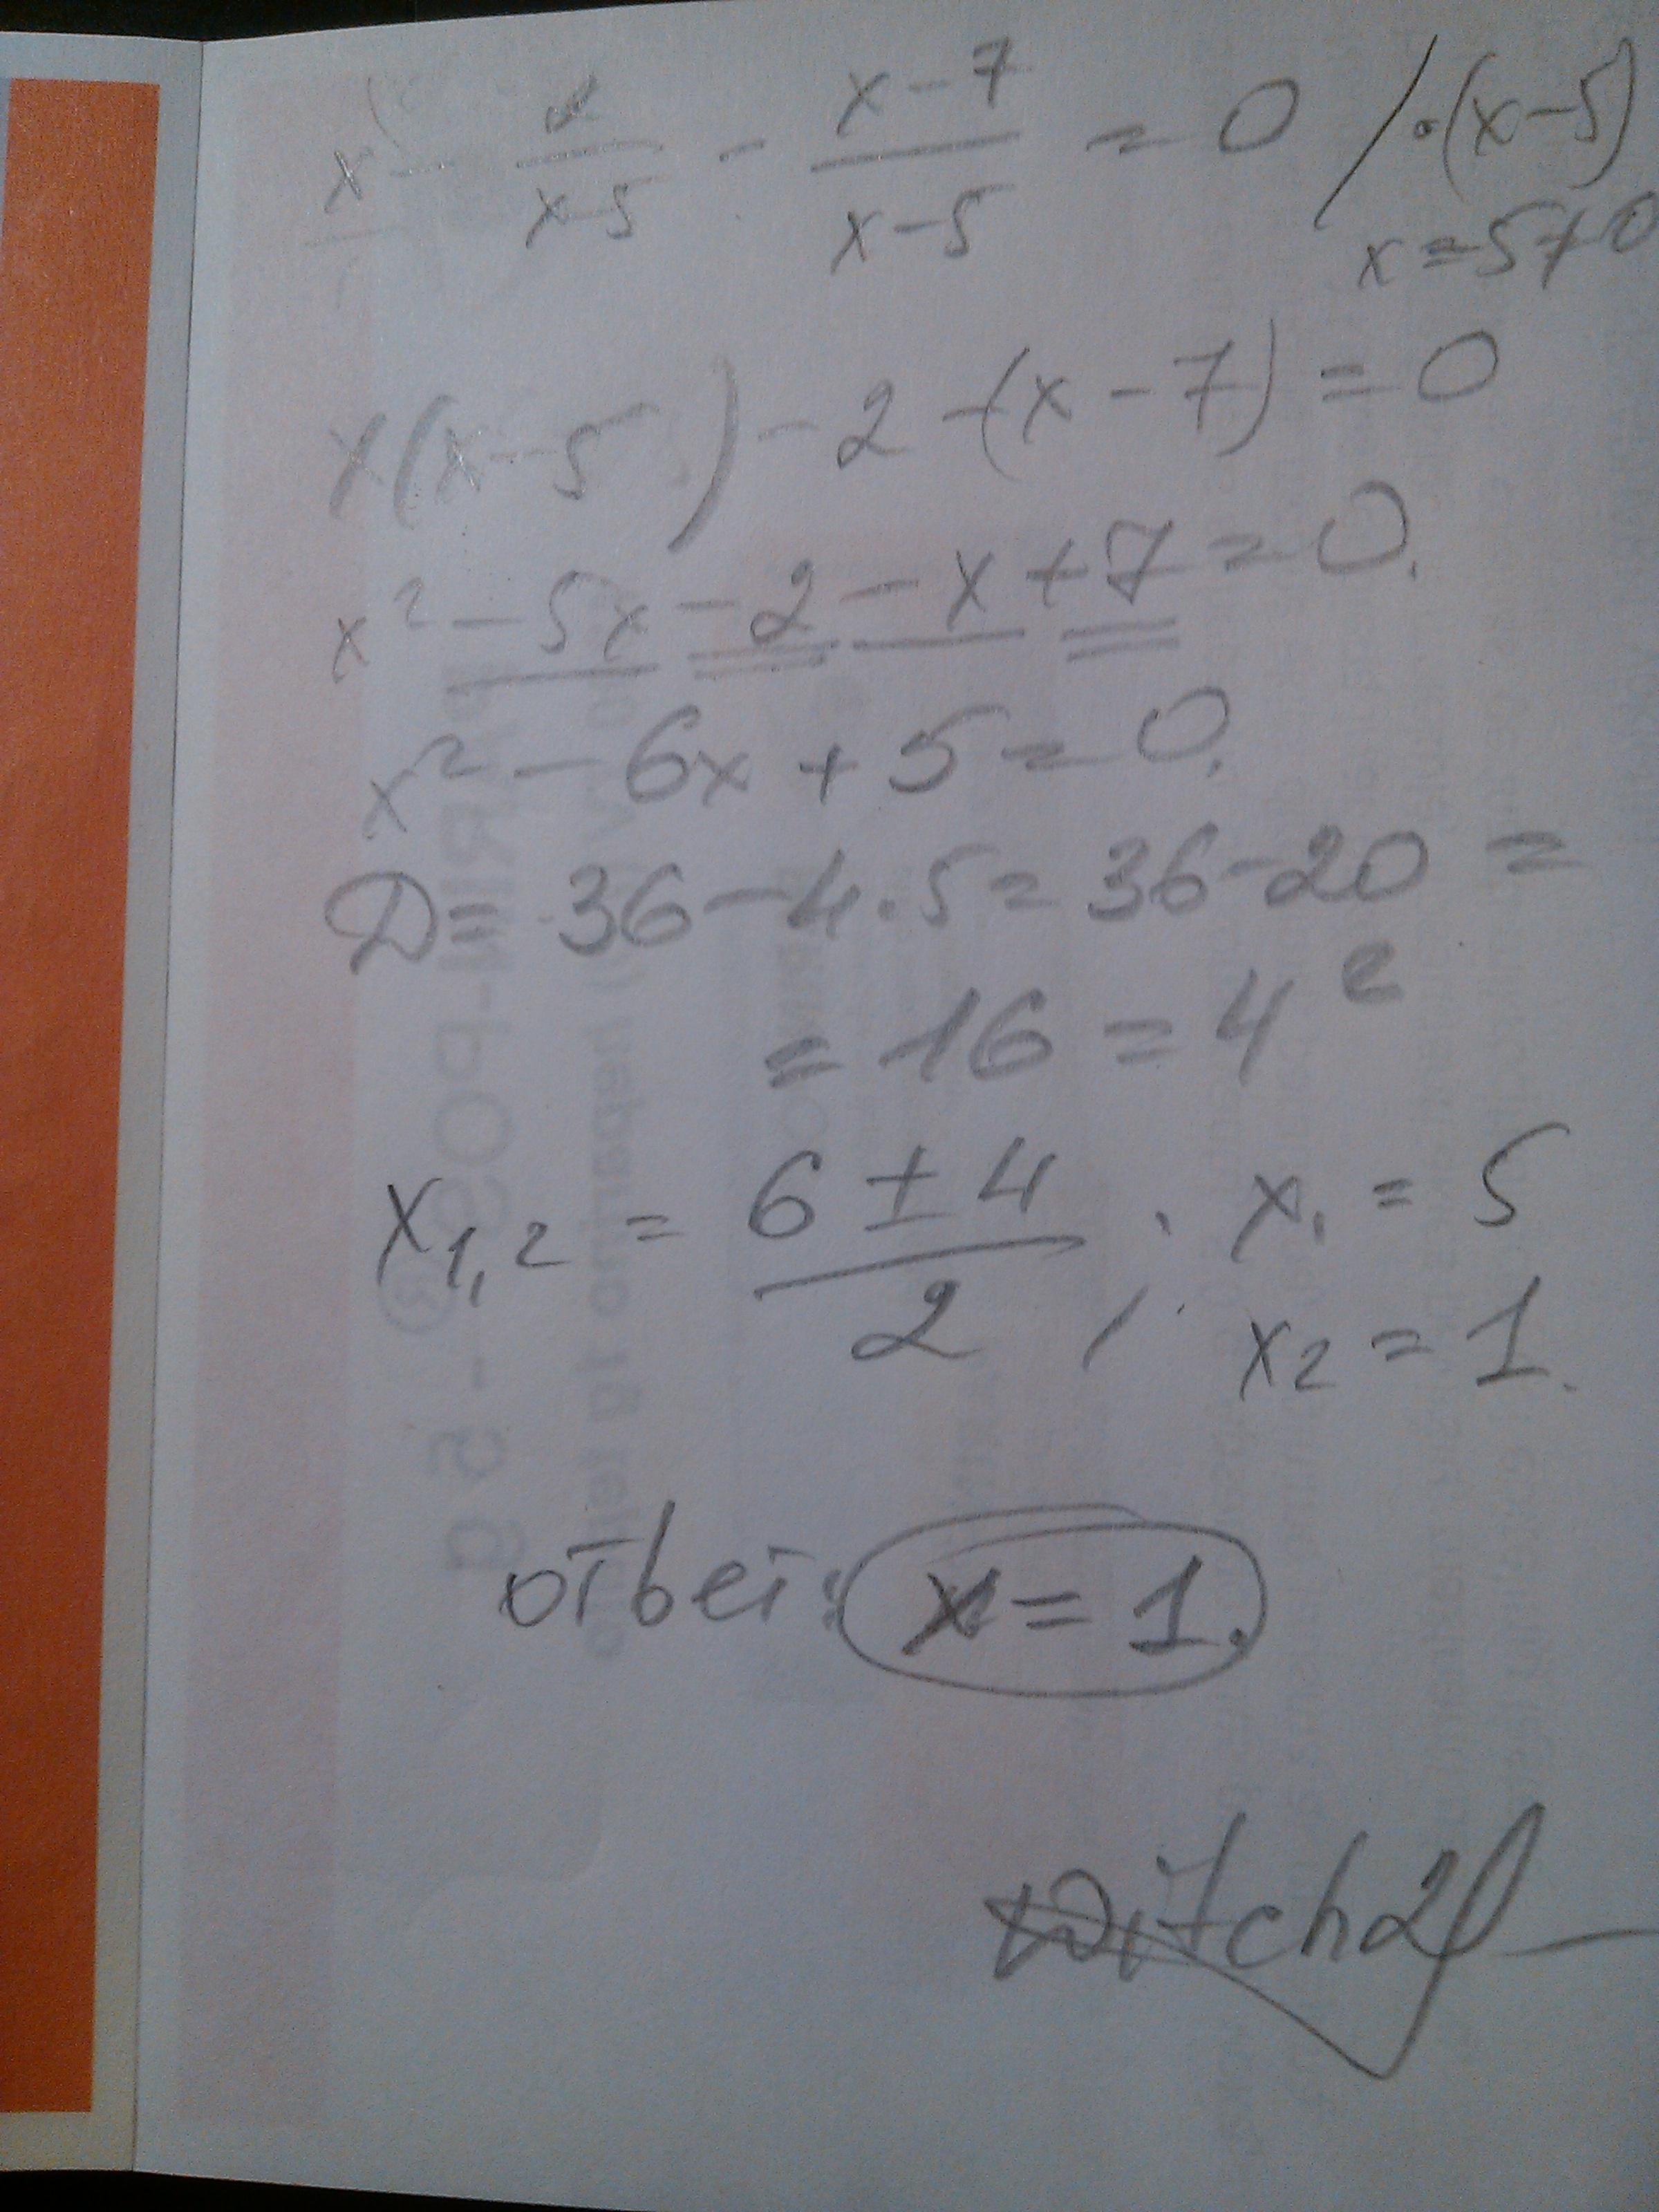 x - 2/(x-5) - (x-7)/(x-5) = 0 / ·(x-5)
x = 5 ≠ 0
x(x-5) - 2 - (x-7) = 0
x² - 5x - 2 - x + 7 = 0.
x² - 6x + 5 = 0.
D = 36 - 4·5 = 36 - 20 =
= 16 = 4²
x₁,₂ = (6 ± 4)/2 ; x₁ = 5
x₂ = 1.
ответ: x = 1.